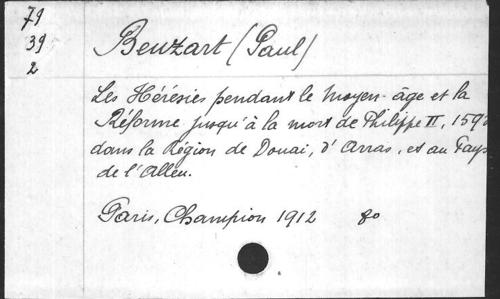 79
39
2
Beuzart (Paul)
Les Hérésies pendant le moyen-âge et la
Réforme jusqu'à la mort de Philippe II, 159
dans la Région de Douai, d'Arras, et au Pays
de l'Alleu.
Paris, Champion 1912 8o